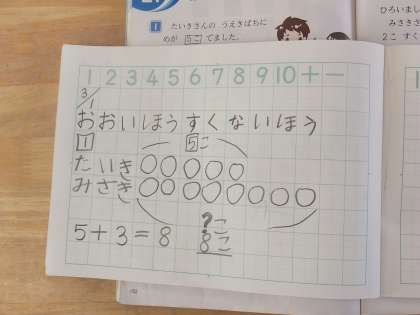 1 たいきさんの うえきばちに
めが 5こ でました。
ひろいまし
みさき
2こ すく
1 2 3 4 5 6 7 8 9 10 + −
3/1
おおいほうすくないほう
1 5こ
たいき
みさき
5+3=8 ?こ
8こ